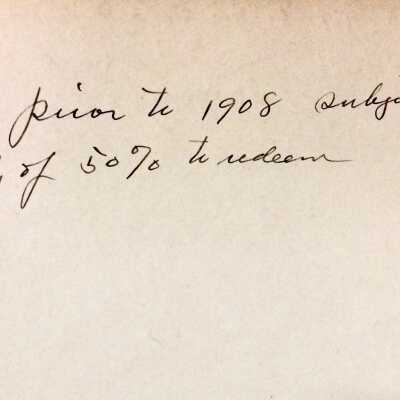 prior to 1908
of 50% to redeem